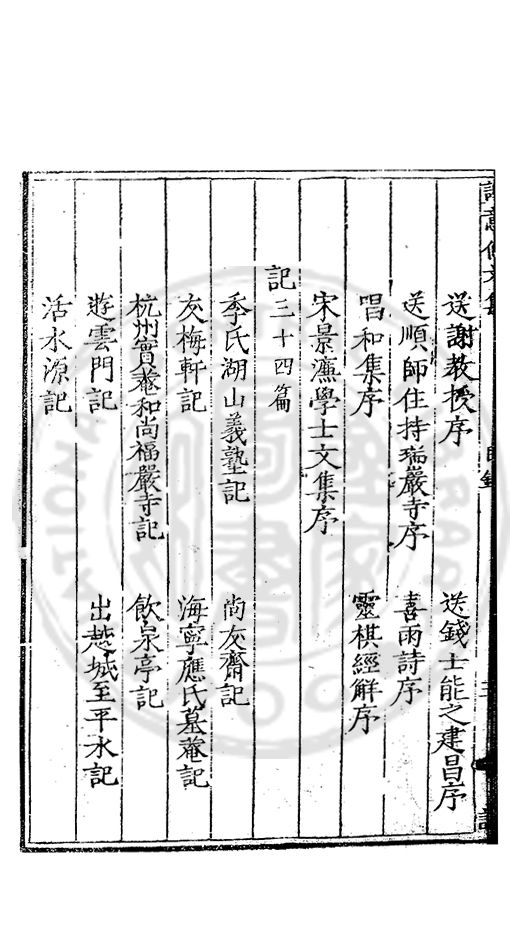 送謝教授序　送錢士能之建昌序
送順師住持瑞巖寺序　喜雨詩序
唱和集序　靈棋經解序
宋景濂學士文集序
記三十四篇
季氏湖山義塾記　尚友齋記
友梅軒記　海寧應氏墓菴記
杭州實菴和尚福嚴寺記　飲泉亭記
遊雲門記　出越城至平水記
活水源記